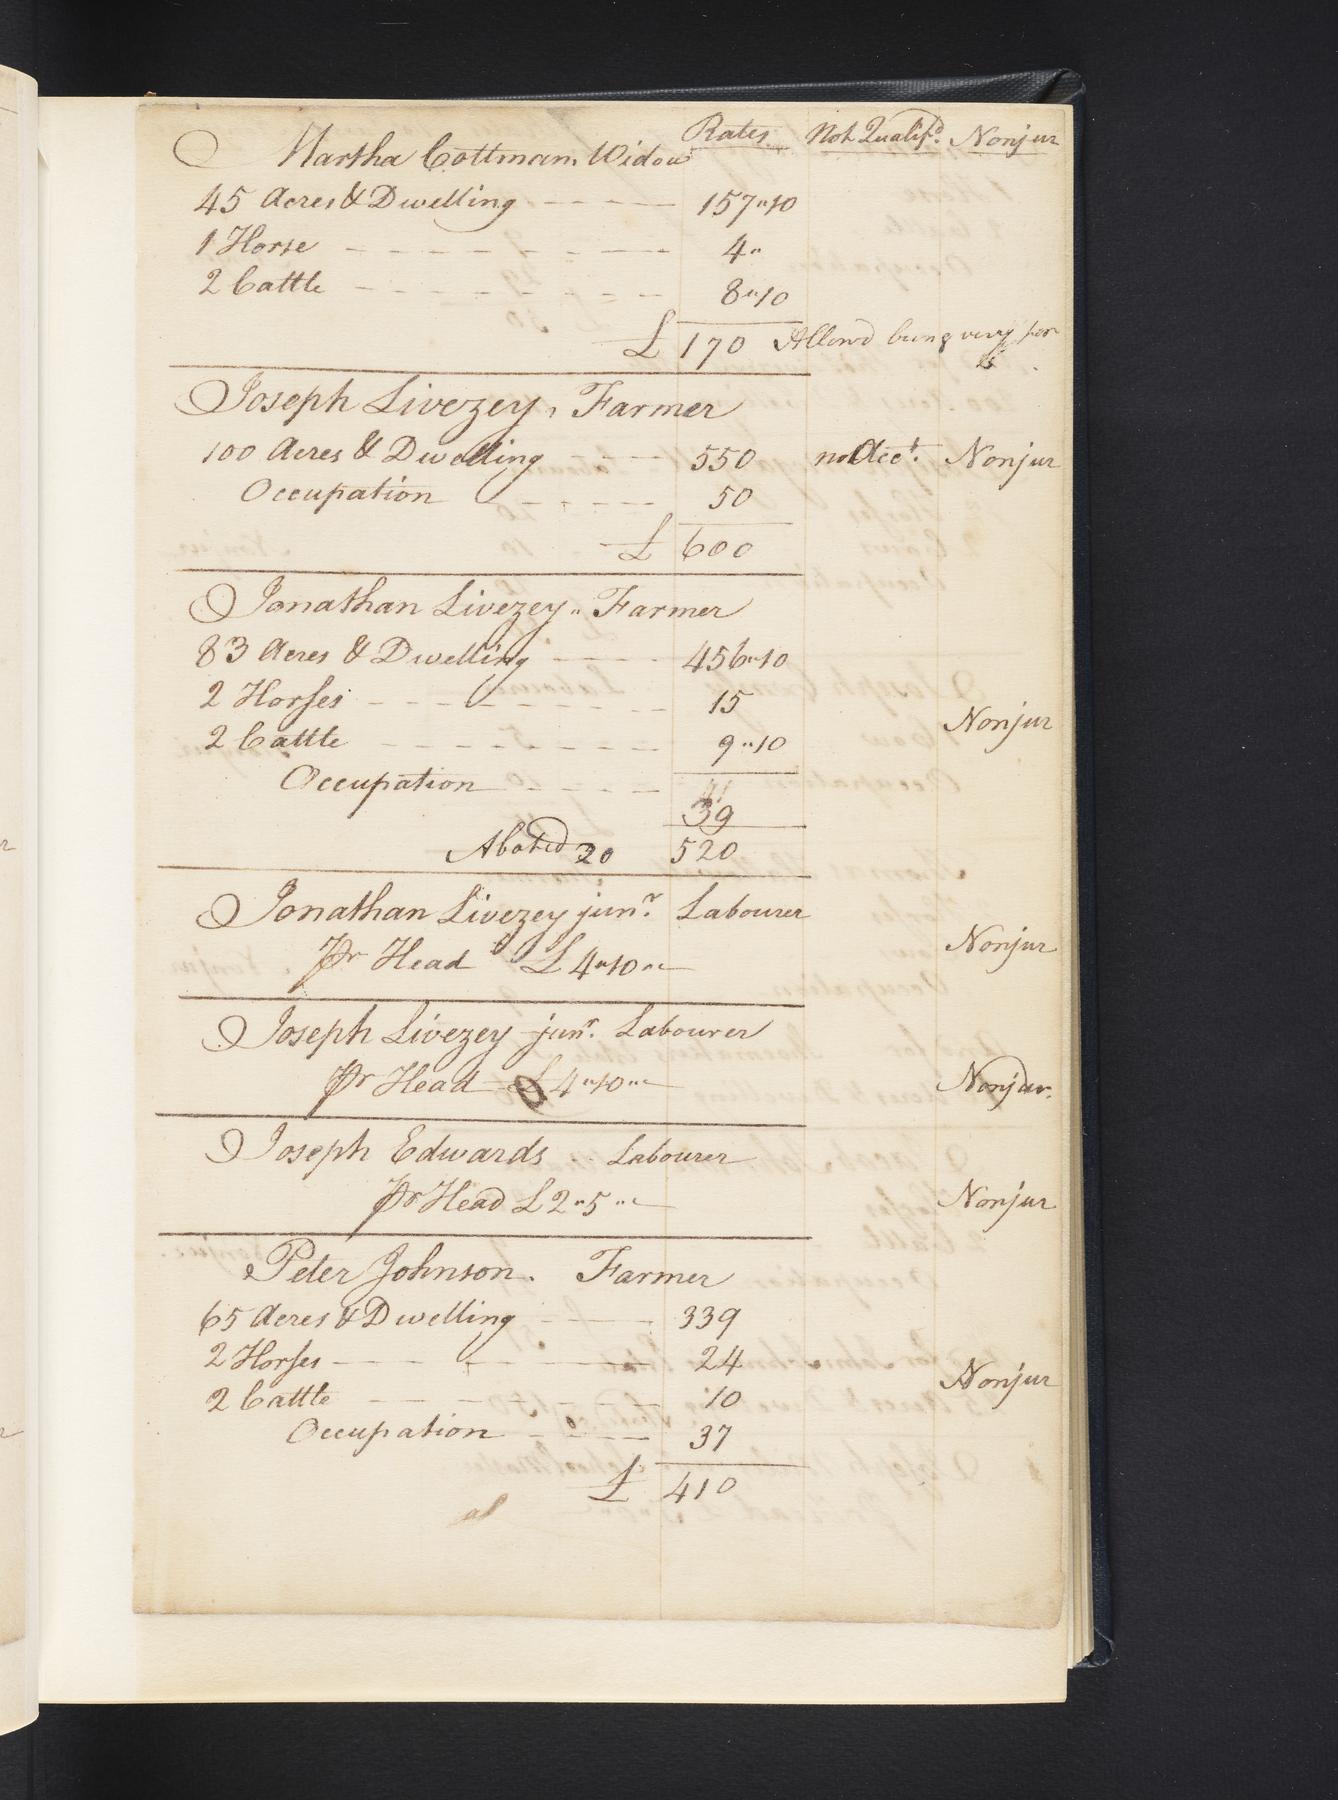 Rates Not Qualifd. Nonjur
Martha Cottman Widow
45 Acres & Dwelling - - - - 157"10
1 Horse - - - - - - - 4"
2 Cattle - - - - - - - 8"10
£ 170 Allowd being very poor
Joseph Livezey, Farmer
100 Acres & Dwelling - - - 550 not Acct. Nonjur
Occupation - - - - - 50
£ 600
Jonathan Livezey" Farmer
83 Acres & Dwelling - - - - 456"10
2 Horses - - - - - - - 15 Nonjur
2 Cattle - - - - - - - 9"10
Occupation - - - - 39
Abated 20 520
Jonathan Livezey junr. Labourer
Pr Head £4"10"- Nonjur
Joseph Livezey junr. Labourer
Pr Head £4"10"- Nonjur.
Joseph Edwards .. Labourer
Pr Head £2"5"- Nonjur
Peter Johnson. Farmer
65 Acres & Dwelling - - - - 339
2 Horses - - - - - - 24
2 Cattle - - - - - - 10 Nonjur
Occupation - - - - 37
£ 410